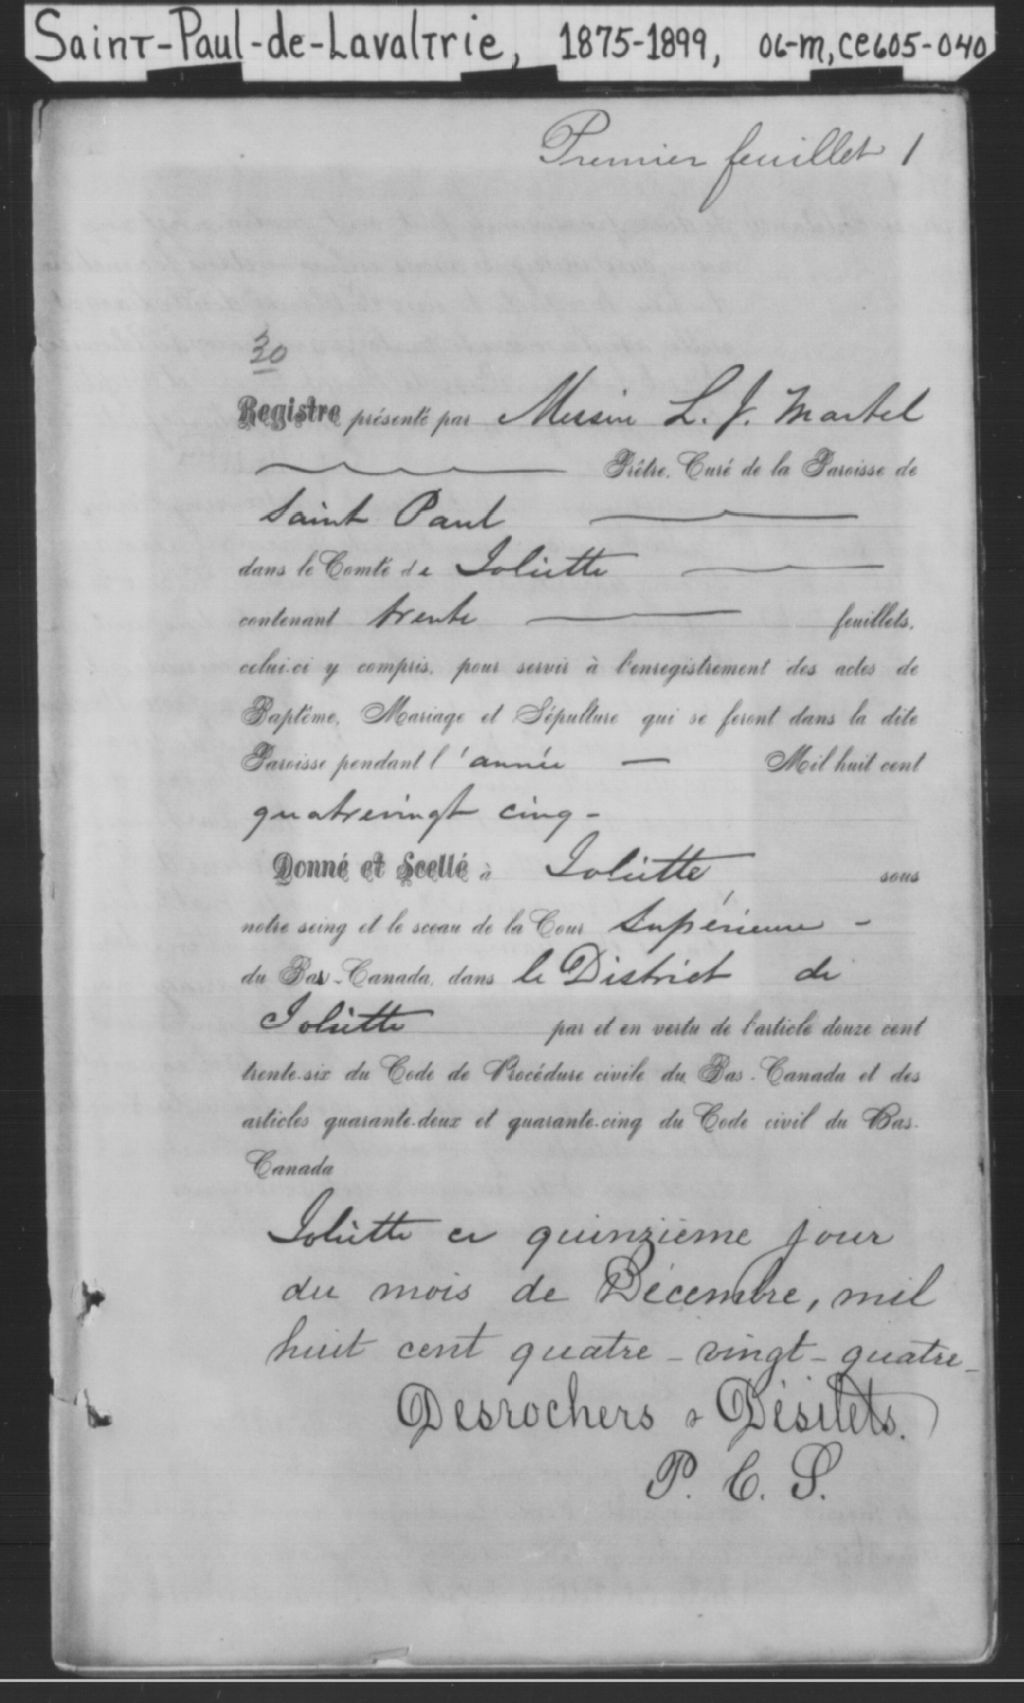 Saint-Paul-de-Lavaltrie, 1875-1899, 06-M, CE605-040
Premier feuillet 1
30
Registre présenté par Messire L. J. Martel
Prêtre, Curé de la Paroisse de
Saint Paul
dans le Comté de Joliette
contenant trente feuillets,
celui-ci y compris, pour servir à l'enregistrement des actes de
Baptême, Mariage et Sépulture qui se feront dans la dite
Paroisse pendant l'année — Mil huit cent
quatrevingt cinq -
Donné et Scellé à Joliette sous
notre seing et le sceau de la Cour Supérieure -
du Bas-Canada, dans le District de
Joliette par et en vertu de l'article douze cent
trente-six du Code de Procédure civile du Bas-Canada et des
articles quarante-deux et quarante-cinq du Code civil du Bas-
Canada
Joliette ce quinzième jour
du mois de Décembre, mil
huit cent quatre-vingt-quatre-
Desrochers & Désilets.
P. C. S.